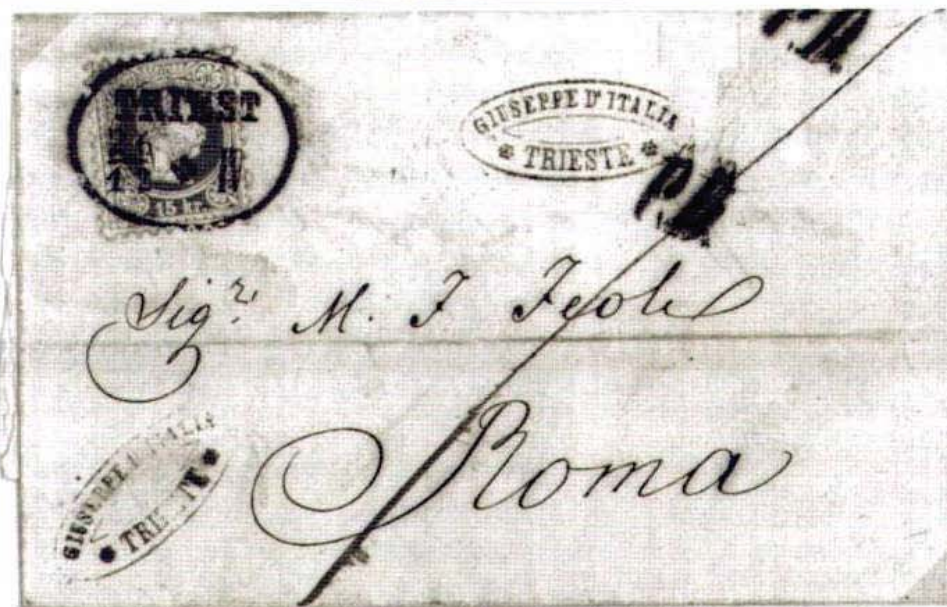 P.D.
TRIEST
15 kr.
GIUSEPPE D'ITALIA
* TRIESTE *
P.D.
Sigri M. J. Feoli
Roma
GIUSEPPE D'ITALIA
* TRIESTE *